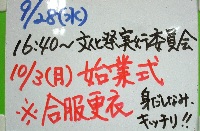 9/28(水)
16:40〜文化祭実行委員会
10/3(月) 始業式
※合服更衣 身だしなみ、
キッチリ!!